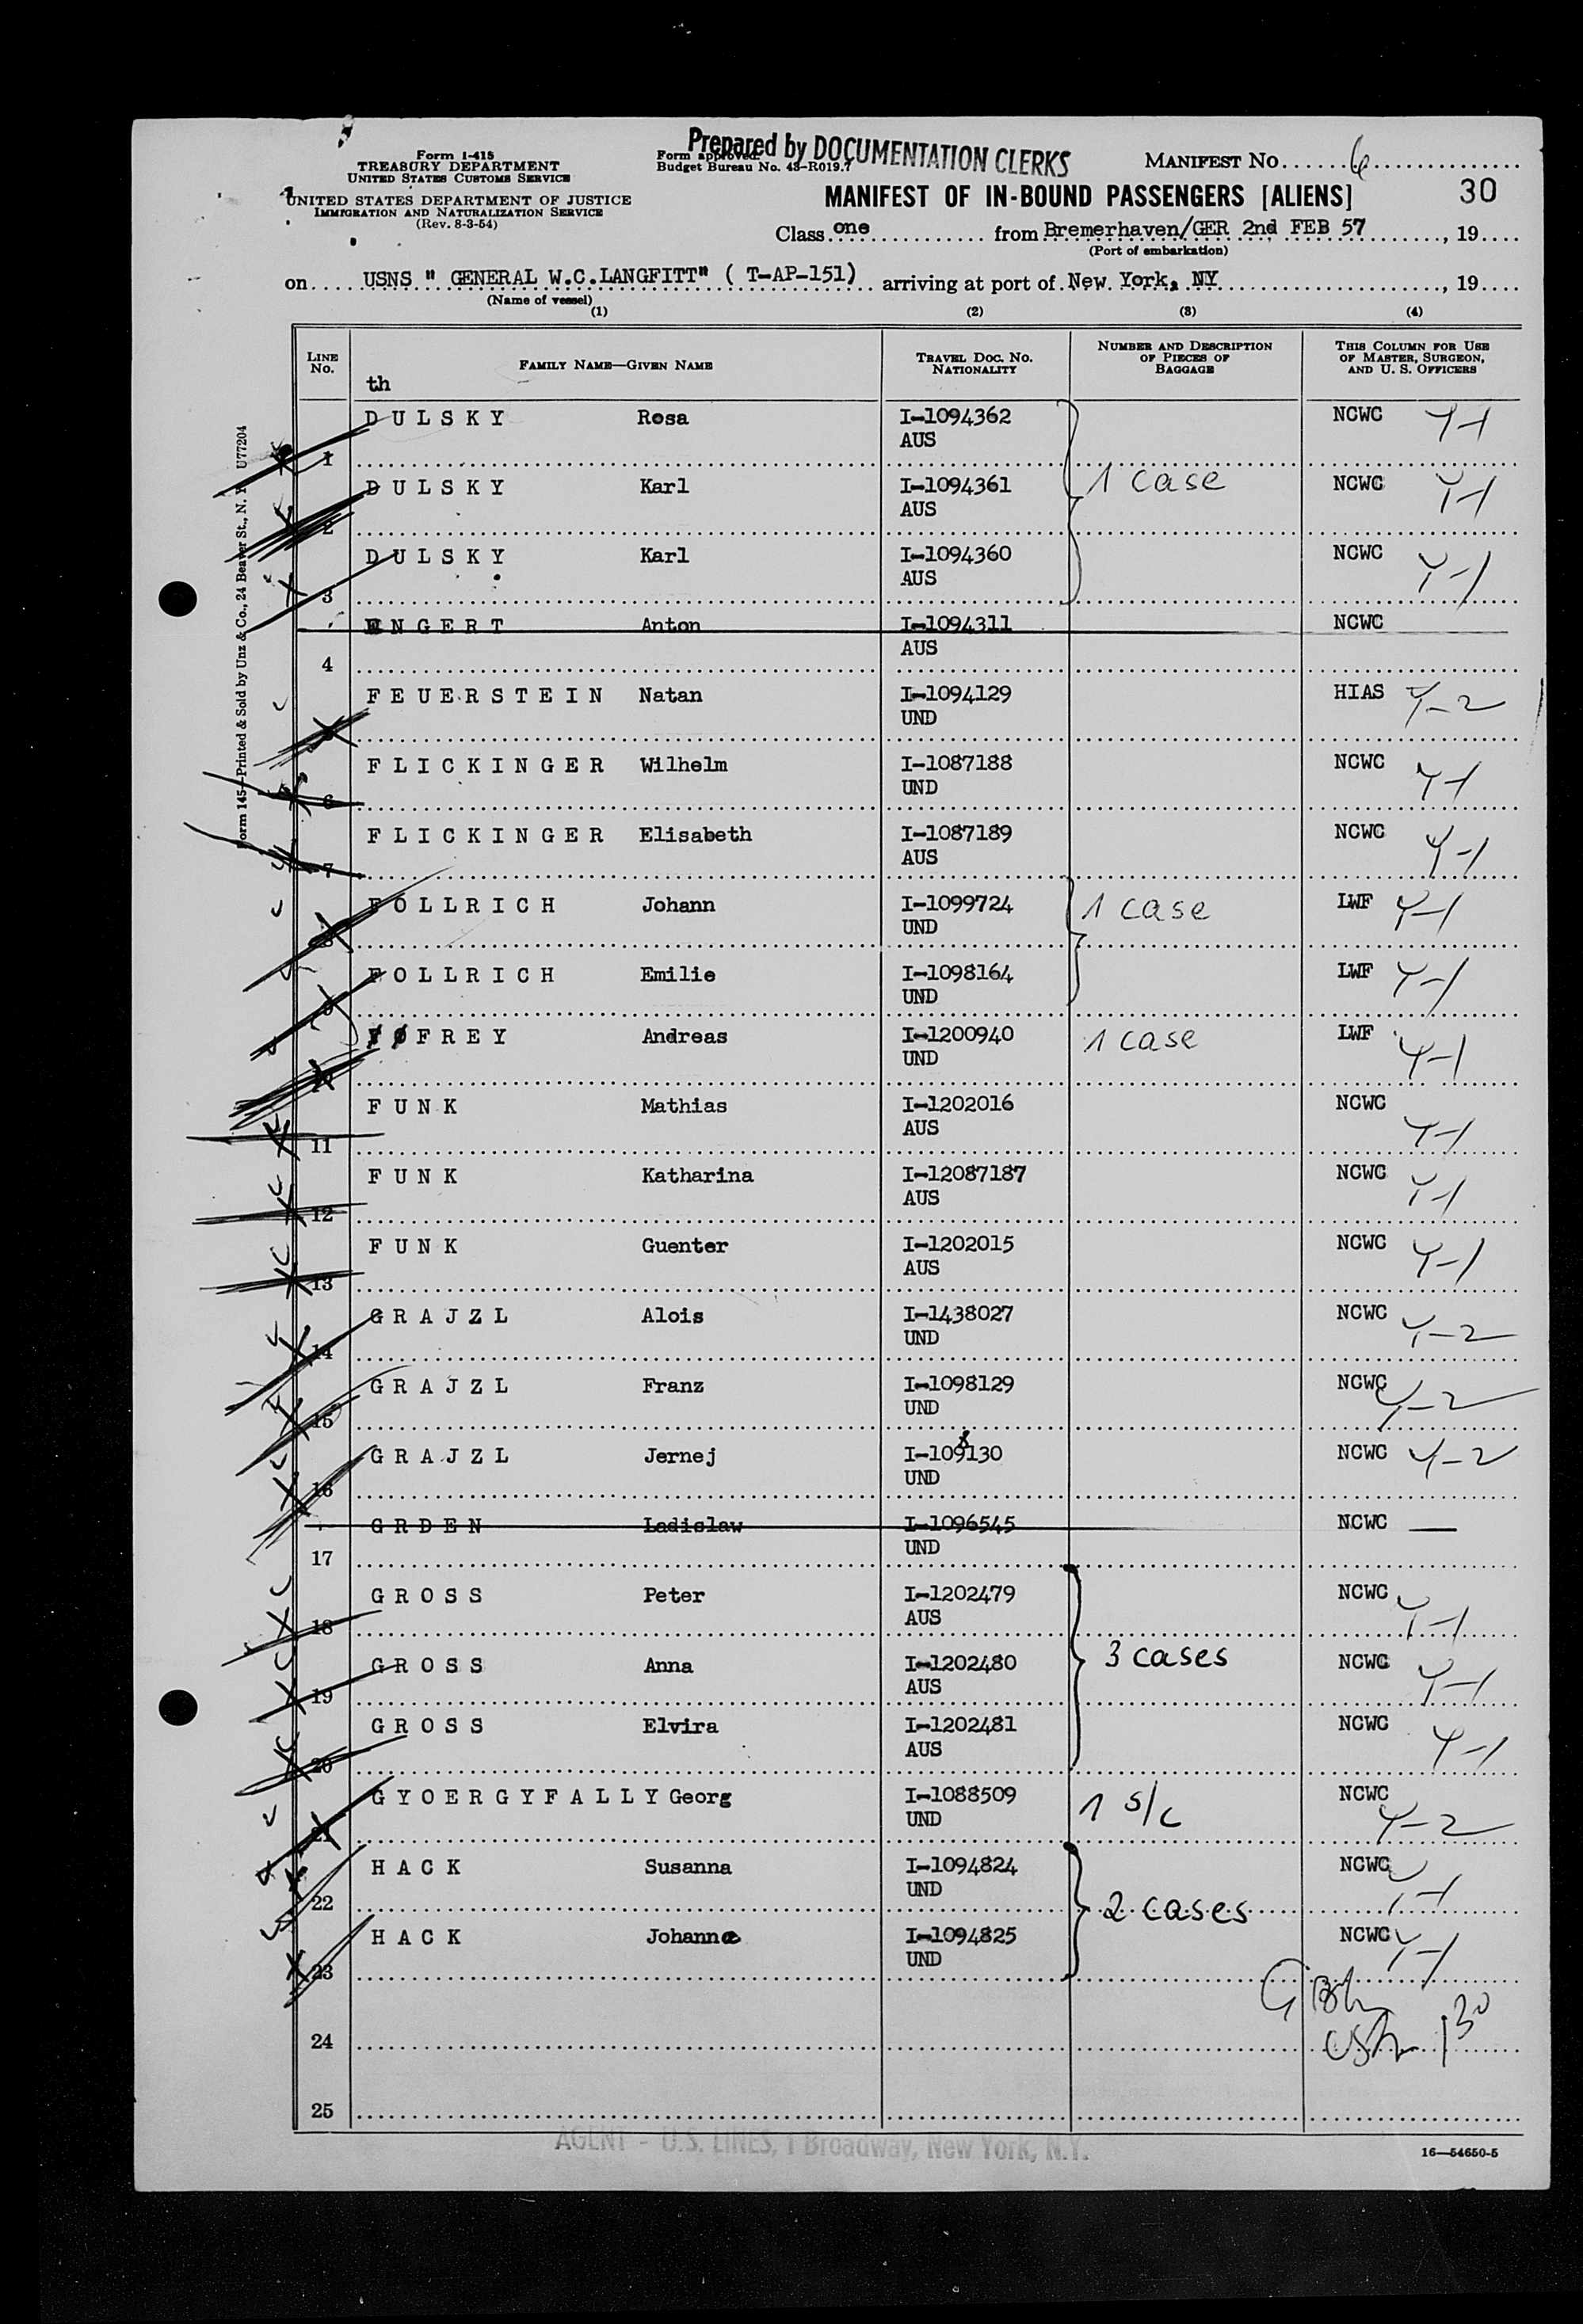 Prepared by DOCUMENTATION CLERKS
Form I-418
TREASURY DEPARTMENT
UNITED STATES CUSTOMS SERVICE
UNITED STATES DEPARTMENT OF JUSTICE
IMMIGRATION AND NATURALIZATION SERVICE
(Rev. 8-3-54)
Form approved.
Budget Bureau No. 43-R019.7
MANIFEST NO. 6
MANIFEST OF IN-BOUND PASSENGERS [ALIENS] 30
Class one from Bremerhaven/GER 2nd FEB 57, 19
(Port of embarkation)
on USNS " GENERAL W.C.LANGFITT" ( T-AP-151) arriving at port of New York, NY, 19
(Name of vessel)
(1) (2) (3) (4)
LINE NO. FAMILY NAME—GIVEN NAME TRAVEL DOC. NO. NATIONALITY NUMBER AND DESCRIPTION OF PIECES OF BAGGAGE THIS COLUMN FOR USE OF MASTER, SURGEON, AND U. S. OFFICERS
th
DULSKY Rosa I-1094362 NCWC Y-1
1 AUS
DULSKY Karl I-1094361 1 case NCWC Y-1
2 AUS
DULSKY Karl I-1094360 NCWC Y-1
3 AUS
ENGERT Anton I-1094311 NCWC
4 AUS
FEUERSTEIN Natan I-1094129 HIAS Y-2
5 UND
FLICKINGER Wilhelm I-1087188 NCWC Y-1
6 UND
FLICKINGER Elisabeth I-1087189 NCWC Y-1
7 AUS
FOLLRICH Johann I-1099724 1 case LWF Y-1
8 UND
FOLLRICH Emilie I-1098164 LWF Y-1
9 UND
FREY Andreas I-1200940 1 case LWF Y-1
10 UND
FUNK Mathias I-1202016 NCWC Y-1
11 AUS
FUNK Katharina I-12087187 NCWC Y-1
12 AUS
FUNK Guenter I-1202015 NCWC Y-1
13 AUS
GRAJZL Alois I-1438027 NCWC Y-2
14 UND
GRAJZL Franz I-1098129 NCWC Y-2
15 UND
8
GRAJZL Jernej I-109130 NCWC Y-2
16 UND
GRDEN Ladislaw I-1096545 NCWC —
17 UND
GROSS Peter I-1202479 NCWC Y-1
18 AUS
GROSS Anna I-1202480 3 cases NCWC Y-1
19 AUS
GROSS Elvira I-1202481 NCWC Y-1
20 AUS
GYOERGYFALLY Georg I-1088509 1 s/c NCWC Y-2
21 UND
HACK Susanna I-1094824 NCWC Y-1
22 UND 2 cases
HACK Johann I-1094825 NCWC Y-1
23 UND
24
25
AGENT - U.S. LINES, 1 Broadway, New York, N.Y.
16—54650-5
Form 145—Printed & Sold by Unz & Co., 24 Beaver St., N. Y. U77204